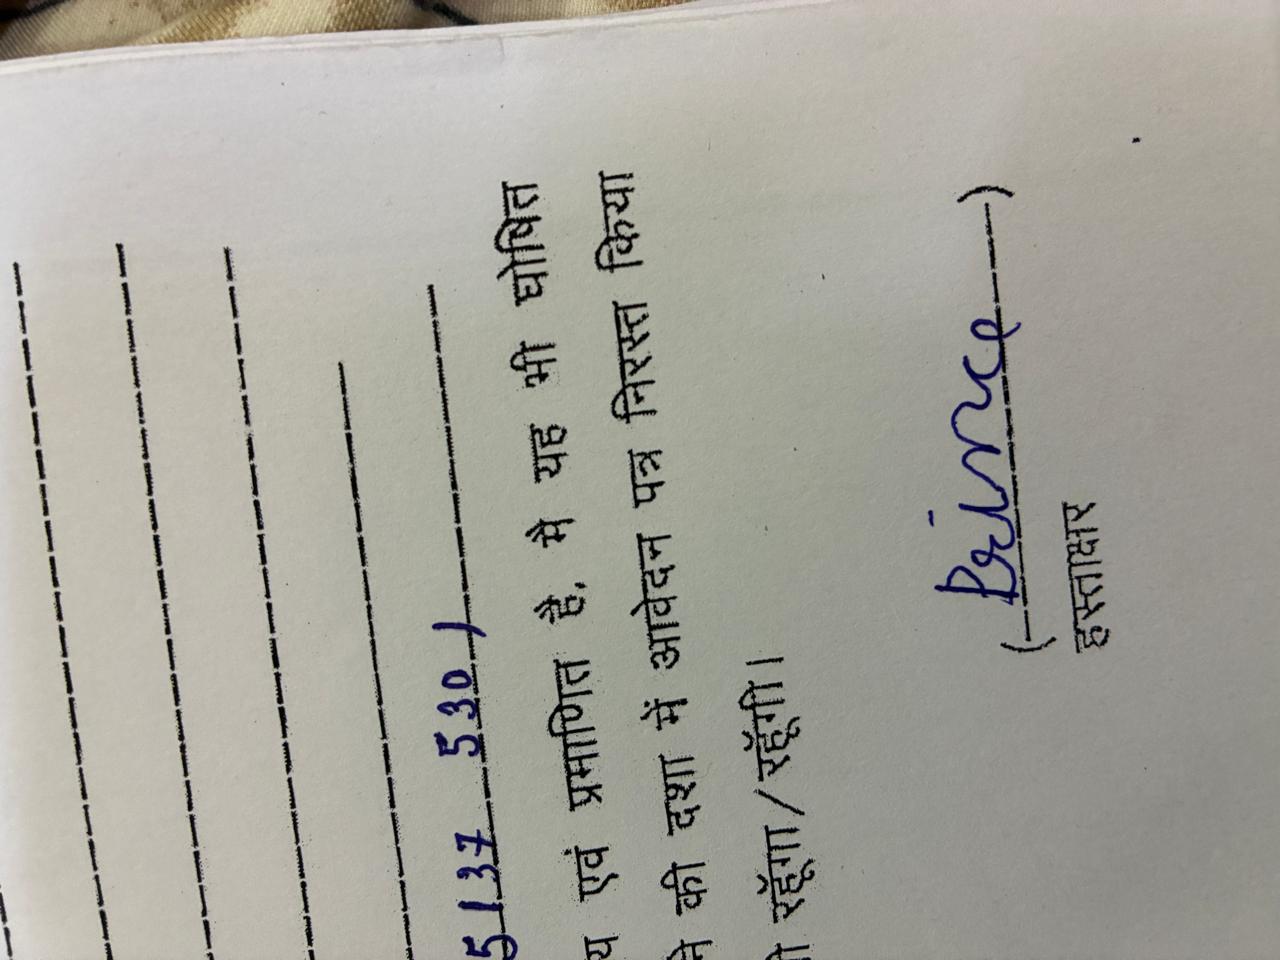 5137 5301
एवं प्रमाणित है, मै यह भी घोषित
की दशा में आवेदन पत्र निरस्त किया
रहूँगा/रहूँगी।
(Prince)
हस्ताक्षार